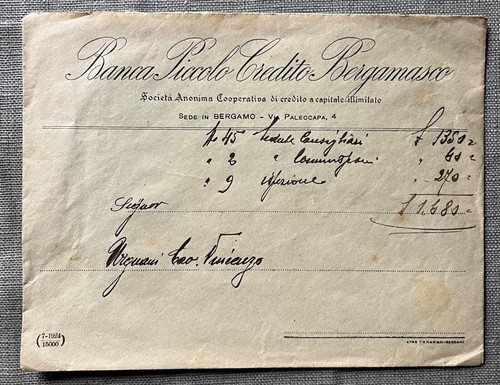 Banca Piccolo Credito Bergamasco
Società Anonima Cooperativa di credito a capitale illimitato
SEDE IN BERGAMO - VIA PALEOCAPA, 4
No 45 sedute Consigliari £ 1350=
" 2 " Commissioni " 60=
" 9 " 270=
£ 1.680=
Signor
Cav. Vincenzo
(7-1924
15000)